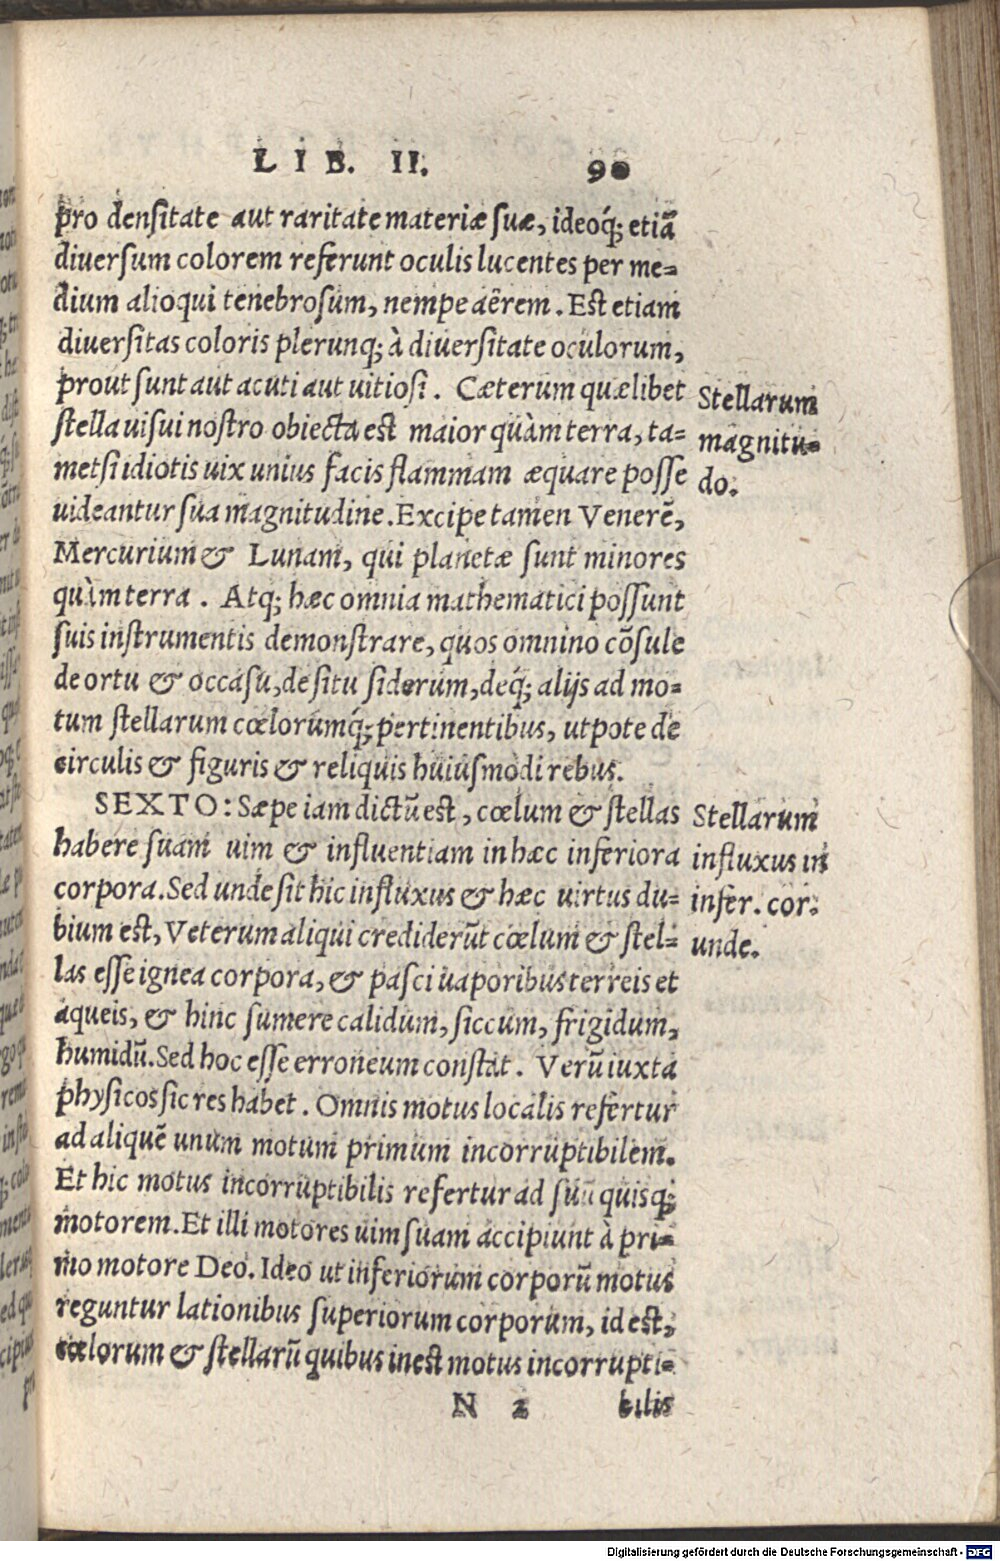 LIB. II. 90
pro densitate aut raritate materiæ suæ, ideoq́; etiã
diuersum colorem referunt oculis lucentes per me=
dium alioqui tenebrosum, nempe aêrem. Est etiam
diuersitas coloris plerunq; à diuersitate oculorum,
prout sunt aut acuti aut uitiosi. Cæterum quælibet
stella uisui nostro obiecta est maior quàm terra, ta=
metsi idiotis uix unius facis flammam æquare posse
uideantur sua magnitudine. Excipe tamen Venerẽ,
Mercurium & Lunam, qui planetæ sunt minores
quàm terra. Atq; hæc omnia mathematici possunt
suis instrumentis demonstrare, quos omnino cõsule
de ortu & occasu, de situ siderum, deq́; alijs ad mo=
tum stellarum cœlorumq́; pertinentibus, utpote de
circulis & figuris & reliquis huiusmodi rebus.
SEXTO: Sæpe iam dictũ est, cœlum & stellas
habere suam uim & influentiam in hæc inferiora
corpora. Sed unde sit hic influxus & hæc uirtus du=
bium est, Veterum aliqui crediderũt cœlum & stel=
las esse ignea corpora, & pasci uaporibus terreis et
aqueis, & hinc sumere calidum, siccum, frigidum,
humidũ. Sed hoc esse erroneum constat. Verũ iuxta
physicos sic res habet. Omnis motus localis refertur
ad aliquẽ unum motum primum incorruptibilem.
Et hic motus incorruptibilis refertur ad suũ quisq;
motorem. Et illi motores uim suam accipiunt à pri=
mo motore Deo. Ideo ut inferiorum corporũ motus
reguntur lationibus superiorum corporum, id est,
cœlorum & stellarũ quibus inest motus incorrupti=
N 2 bilis
Stellarum
magnitu=
do.
Stellarum
influxus in
infer. cor.
unde.
Digitalisierung gefördert durch die Deutsche Forschungsgemeinschaft - DFG